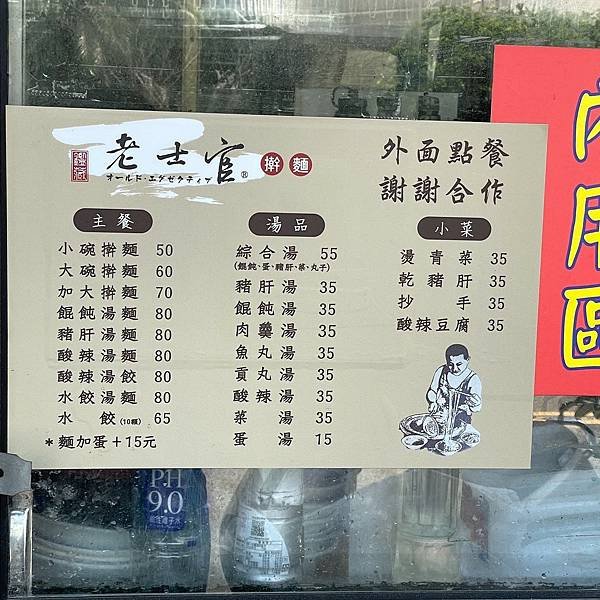 老士官® 擀麵
オールド・エグゼクティブ
外面點餐
謝謝合作
主餐
小碗擀麵 50
大碗擀麵 60
加大擀麵 70
餛飩湯麵 80
豬肝湯麵 80
酸辣湯麵 80
酸辣湯餃 80
水餃湯麵 80
水餃(10顆) 65
*麵加蛋+15元
湯品
綜合湯 55
(餛飩、蛋、豬肝、菜、丸子)
豬肝湯 35
餛飩湯 35
肉羹湯 35
魚丸湯 35
貢丸湯 35
酸辣湯 35
菜湯 35
蛋湯 15
小菜
燙青菜 35
乾豬肝 35
抄手 35
酸辣豆腐 35
內用區
PH
9.0
鹼性離子水